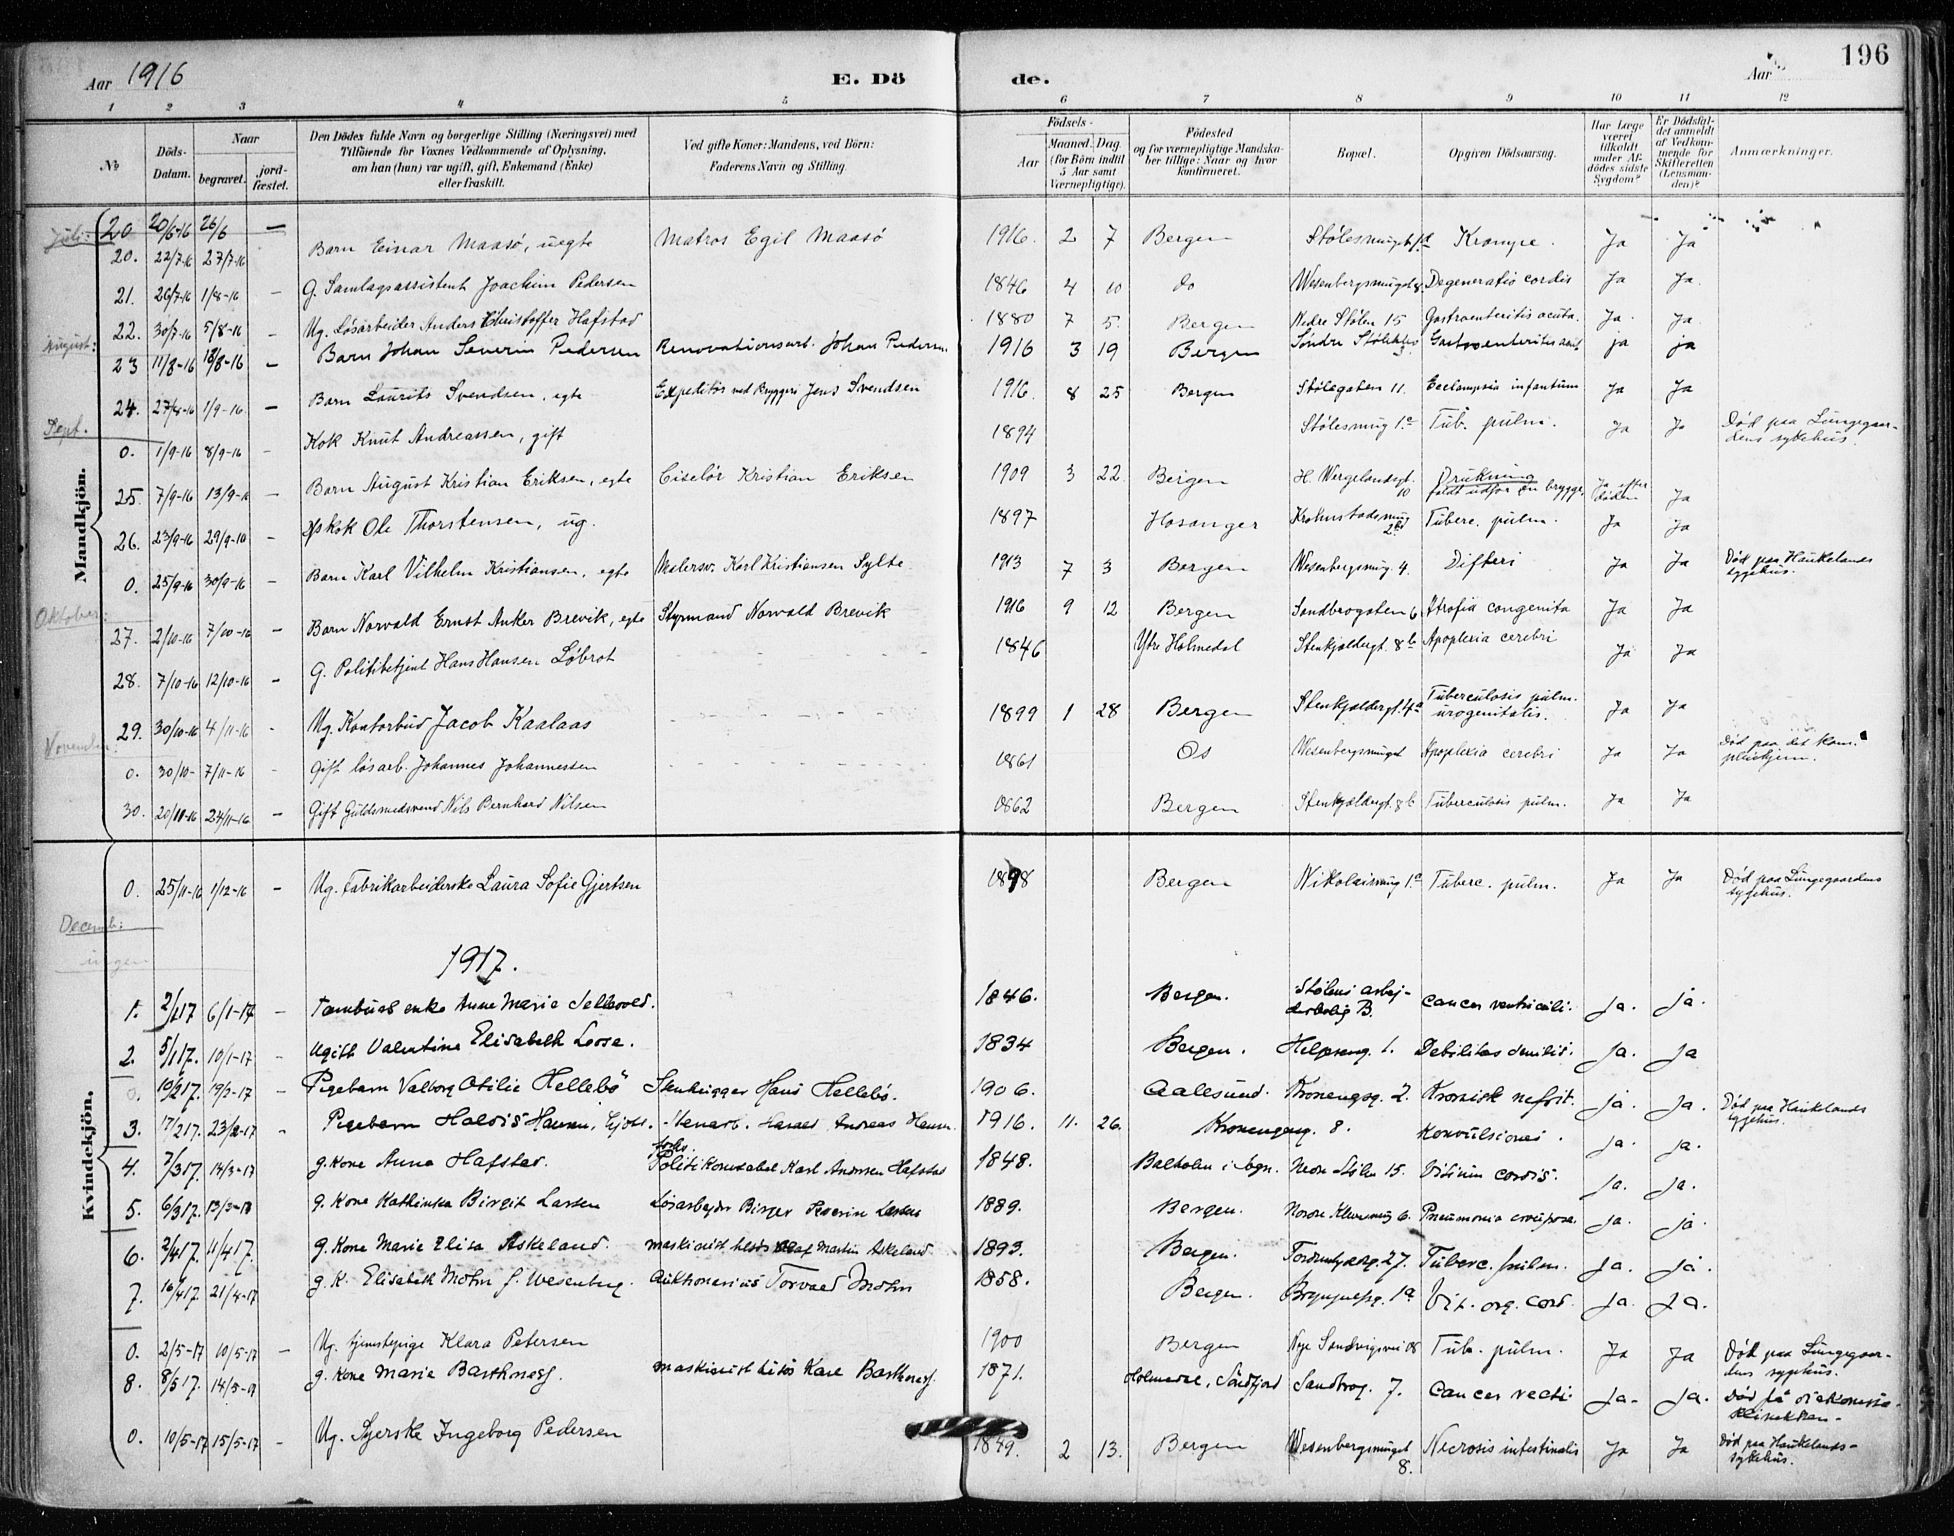 Aar 1916 E. Döde. Aar 196
1 2 3 4 5 6 7 8 9 10 11 12
No
Döds-Datum.
Naar
begravet. jord-fæstet.
Den Dödes fulde Navn og borgerlige Stilling (Næringsvei) med
Tilföiende for Voxnes Vedkommende af Oplysning,
om han (hun) var ugift, gift, Enkemand (Enke)
eller fraskilt.
Ved gifte Koner: Mandens, ved Börn:
Faderens Navn og Stilling.
Födsels-
Aar
Maaned. Dag.
(for Börn indtil
5 Aar samt
Værnepligtige).
Födested
og for værnepligtige Mandska-
ber tillige: Naar og hvor
konfirmeret.
Bopæl.
Opgiven Dödsaarsag.
Har Læge
været
tilkaldt
under Af-
dödes sidste
Sygdom?
Er Dödsfal-
det anmeldt
af Vedkom-
mende for
Skifteretten
(Lensman-
den)?
Anmærkninger.
Mandkjön.
Juli: 20 20/6-16 26/6 —
20. 22/7-16 27/7-16 Barn Einar Maasö, uegte Matros Egil Maasö 1916. 2 7 Bergen Ja Ja
21. 26/7-16 1/8-16 - G. Samlagsassistent Joachim Pedersen 1846 4 10 do Wesenbergsmuget 8. Degeneratio cordis Ja Ja.
22. 30/7-16 5/8-16 - Ug. Løsarbeider Anders Christoffer Hafstad 1880 7 5. Bergen Nedre Stølen 15 Gastroenteritis acuta. Ja. Ja.
August:
23 11/8-16 18/8-16 - Barn Johan Severin Pedersen Renovationsarb. Johan Pedersen 1916 3 19 Bergen Söndre 3. Gastroenteritis acut ja ja
24. 27/8-16 1/9-16 - Barn Laurits Svendsen, egte Expeditör ved Bryggeri Jens Svendsen 1916. 8 25 Bergen Stølegaten 11. Eeclampsia infantum Ja Ja
Sept.
0. 1/9-16 8/9-16 - Kok Knut Andreassen, gift 1894 Stølesmug 1.a Tub. pulm. Ja Ja Død paa Lungegaar-
dens sykehus.
25 7/9-16 13/9-16 - Barn August Kristian Eriksen, egte Ciselör Kristian Eriksen 1909 3 22. Bergen H. Wergelandsgt. 10 Drukning
faldt udfor en brygge, Ja efter döden Ja
26. 23/9-16 29/9-16 - Ole Thorstensen, ug. 1897 Hosanger Tuberc. pulm. Ja Ja
0. 25/9-16 30/9-16 - Barn Karl Vilhelm Kristiansen, egte Malersv. Karl Kristiansen Sylte. 1913 7 3 Bergen Wesenbergsmug 4. Difteri Ja Ja Død paa Haukelands
sygehus.
Oktober:
27. 2/10-16 7/10-16 - Barn Norvald Ernst Anker Brevik, egte Styrmand Norvald Brevik 1916 9 12 Bergen Sandbrogaten 6 Atrofia congenita Ja Ja
28. 7/10-16 12/10-16 - G. Politibetjent Hans Hansen Løbrot 1846 Ytre Holmedal Stenkjeldergt. 8 b Apoplexia cerebri Ja Ja
29. 30/10-16 4/11-16 - Ug. Kontorbud Jacob Kaalaas 1899 1 28 Bergen Stenkjeldergt. 4a Tuberculosis pulm.
urogenitalis. Ja Ja
November:
0. 30/10- 7/11-16 - Gift løsarb. Johannes Johannessen 1861 Os Wesenbergsmuget Apoplexia cerebri Ja Ja Død paa det kom.
pleiehjem.
30. 20/11-16 24/11-16 - Gift Guldsmedsvend Nils Bernhard Nilsen 1862 Bergen Stenkjeldergt. 8 b Tuberculosis pulm. Ja Ja
Kvindekjön.
0. 25/11-16 1/12-16 - Ug. Fabrikarbeiderske Laura Sofie Gjertsen 1898 Bergen Nikolaismug 1.a Tuberc. pulm. Ja Ja Død paa Lungegaardens
sygehus.
Decemb:
ingen
1917.
1. 2/1 17 6/1-17 - enke Anne Marie 1846. Bergen. Stølens arbej-
derbolig B. Cancer ventriculi. Ja. Ja.
2. 5/1 17. 10/1-17 - Ugift Valentine Elisabeth Loose. 1834 Bergen. 1. Debilitas senilis. Ja. Ja
0. 10/2 17. 19/2-17 - Pigebarn Valborg Otilie Hellebö Stenhugger Hans Hellebö. 1906. Aalesund. Kronengsg. 2. Kronisk nefrit. Ja. Ja. Død paa Haukelands
sygehus.
3. 17/2 17. 23/2-17 - Pigebarn Haldis Hansen, Harald Andreas Hansen 1916. 11. 26. Kronengsg. 8. Konvulsioner. Ja. Ja.
4. 7/3 17. 14/3-17 g. Kone Anna Hafstad. forhs.
Politikonstabel Karl Andersen Hafstad 1848. Balholm i Sogn. Nedre Stølen 15. Vitium cordis. Ja. Ja.
5. 6/3 17. 13/3-17 g. Kone Kathinka Birgit Larsen Løsarbejder Birger Severin Larsen 1889. Bergen. Nordre Kleivesmug 6. Pneumonia crouposa. Ja. Ja
6. 2/4 17. 11/4 17. g. Kone Marie Elisa Askeland. Maskinist Martin Askeland. 1893. Bergen. 27. Tuberc. pulm. Ja. Ja.
7. 16/4 17. 21/4-17 g. K. Elisabeth Mohn f. Wesenberg. Auktionarius Torvald Mohn 1858. Bergen. 1a Vit. org. cord. Ja. Ja.
0. 2/5-17 10/5-17 - Ug. tjenestepige Klara Petersen 1900 Bergen Nye Sandvigsvei Tub. pulm. Ja Ja Død paa Lungegaar-
dens sygehus.
8. 8/5 17. 14/5-17 g. Kone Marie Maskinist Karl 1871. Holmedal, Söndfjord Sandbrog. 7. Cancer recti. Ja. Ja. Död på diakonisse-
klinikken.
0. 10/5-17 15/5-17 - Ug. Syerske Ingeborg Pedersen 1849. 2 13. Bergen Wesenbergsmuget
8. Necrosis intestinalis Ja Ja Død paa Haukelands-
sykehus.